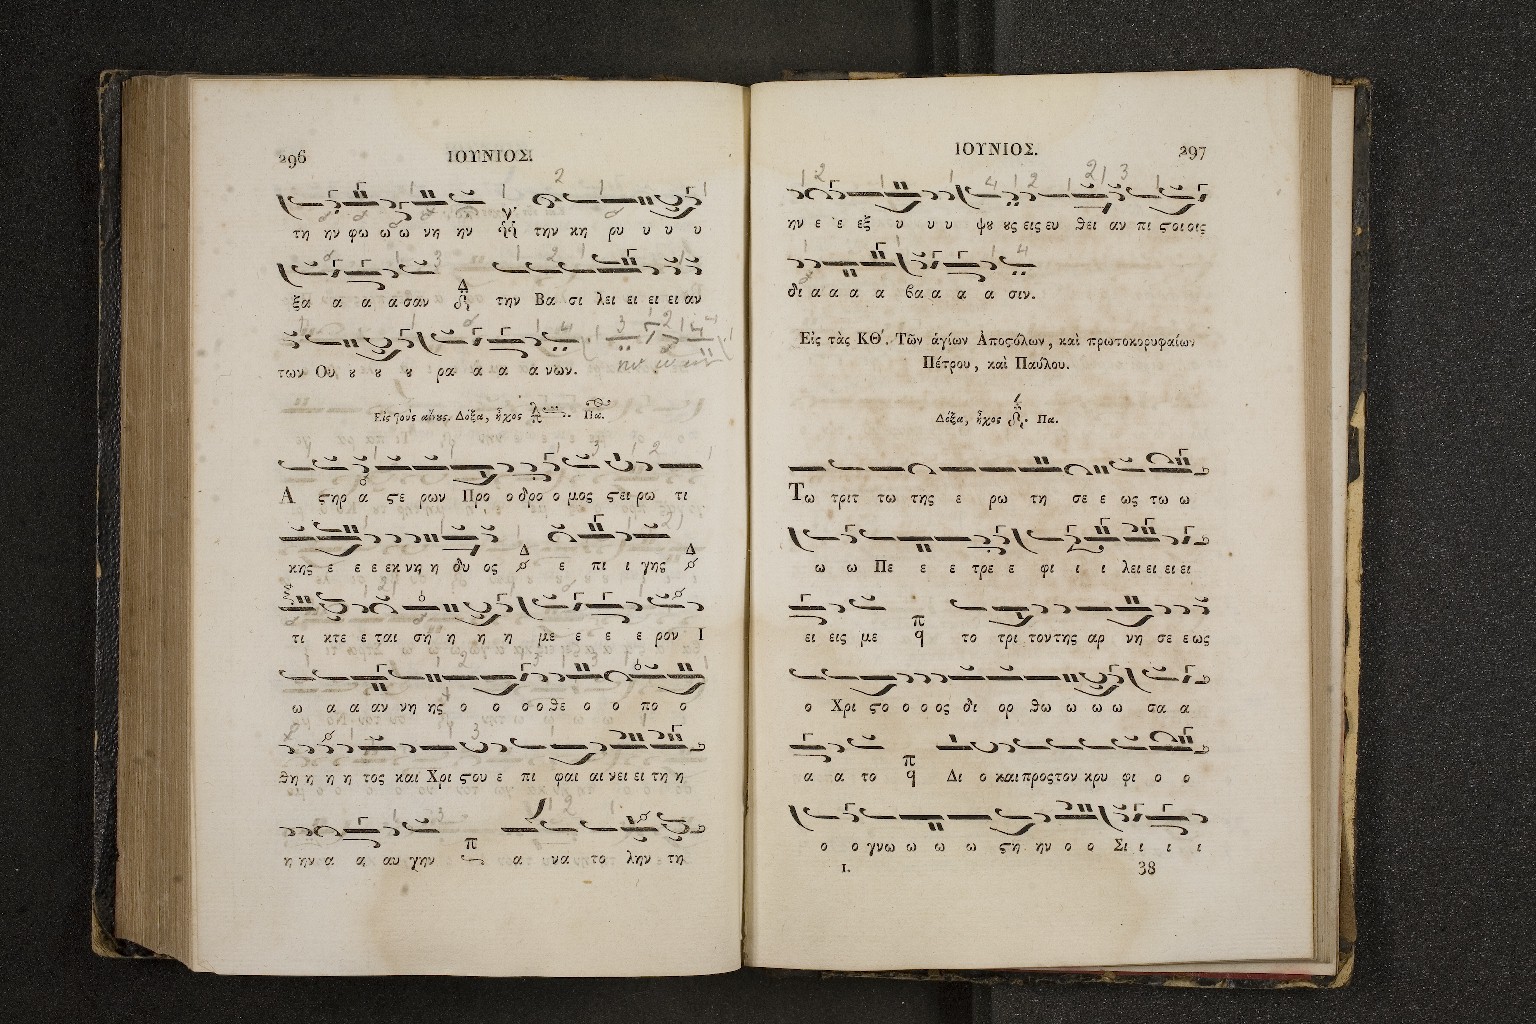 296 ΙΟΥΝΙΟΣ.
τη ην φω ω ω νη ην την κη ρυ υ υ υ
ξα α α α σαν Δ την Βα σι λει ει ει ει αν
των Ου ȣ ȣ ȣ ρα α α α νων.
Εἰς τοὺς αἴνους. Δόξα, ἦχος Πα.
Α ϛηρ α ϛε ρων Προ ο δρο ο μος ϛει ρω τι
κης ε ε ε εκ νη η δυ ος Δ ε πι ι γης Δ
τι κτε ε ται ση η η η με ε ε ε ρον Ι
ω α α αν νη ης ο ο ο ο θε ο ο πο ο
θη η η η τος και Χρι ϛου ε πι φαι αι νει ει τη η
η ην α α αυ γην π α να το λην τη
ΙΟΥΝΙΟΣ. 297
ην ε ε εξ υ υ υ ψȣ ȣς εις ευ θει αν πι ϛοι οις
δι α α α α βα α α α σιν.
Εἰς τὰς ΚΘ´. Τῶν ἁγίων Ἀποϛόλων, καὶ πρωτοκορυφαίων
Πέτρου, καὶ Παύλου.
Δόξα, ἦχος Πα.
Τω τριτ τω της ε ρω τη σε ε ως τω ω
ω ω Πε ε ε τρε ε φι ι ι λει ει ει ει
ει εις με π q το τρι τον της αρ νη σε ε ως
ο Χρι ϛο ο ο ος δι ορ θω ω ω ω σα α
α α το π q Δι ο και προς τον κρυ φι ο ο
ο ο γνω ω ω ω ϛη ην ο ο Σι ι ι ι
Ι. 38